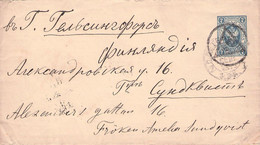 въ Г. Гельсингфорсъ
Финляндія
Александровская у. 16.
Сундквистъ
Alexanders gattan 16
Fröken Amelia Sundqvist